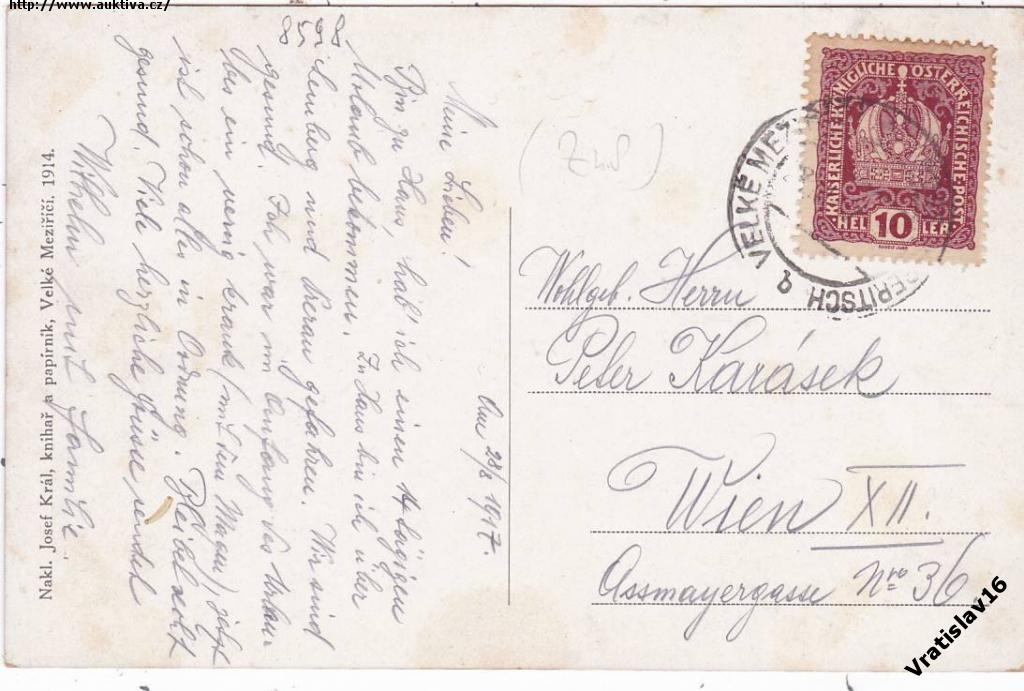 http://www.auktiva.cz/
8598
Meine Lieben!
Bin zu Haus, hab' ich einen 14 tägigen
Urlaub bekommen. In Haus bin ich über
Lemberg und Prerau gefahren. Wir sind
gesund. Ich war im Anfang des Urlau-
bes ein wenig krank (mit dem Magen), jetzt
ist schon alles in Ordnung. Bleibet selbst
gesund. Viele herzliche Grüsse sendet
Wilhelm mit Familie
Am 28/8 1917.
Nakl. Josef Král, knihař a papírník, Velké Meziříčí, 1914.
KAISERLICHE KÖNIGLICHE ÖSTERREICHISCHE POST.
HELLER
10
VELKÉ MEZ
ERITSCH
Wohlgeb. Herrn
Peter Karásek
Wien XII.
Assmayergasse Nro 36
Vratislav16